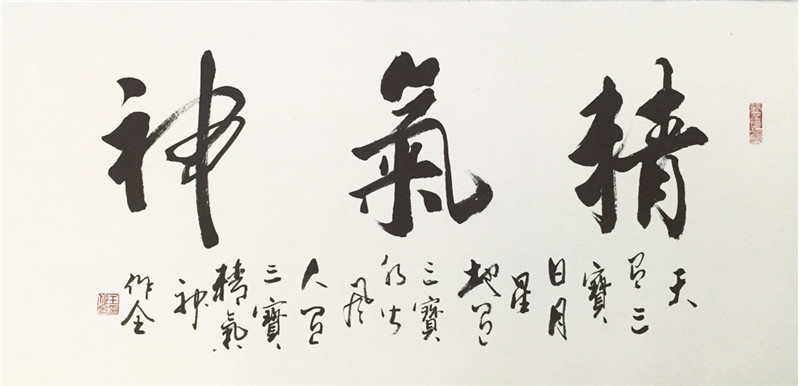 精氣神
天
有三
寶
日月
星
地有
三寶
水火
風
人有
三寶
精氣
神
作全